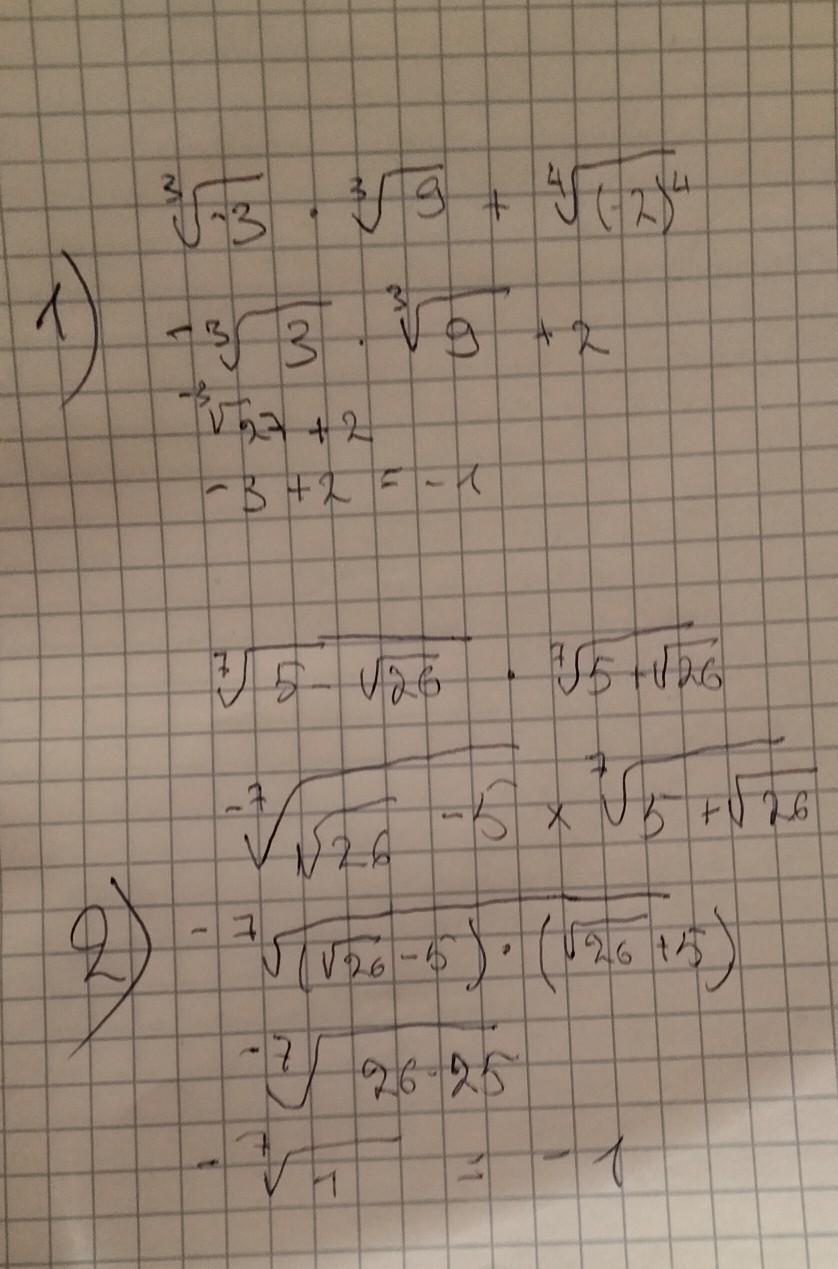 ∛-3 · ∛9 + ∜(-2)⁴
1)
-∛3 · ∛9 + 2
-∛27 + 2
-3 + 2 = -1
⁷√(5 - √26) · ⁷√(5 + √26)
-⁷√(√26 - 5) × ⁷√(5 + √26)
2)
-⁷√((√26 - 5) · (√26 + 5))
-⁷√(26 - 25)
-⁷√1 = -1